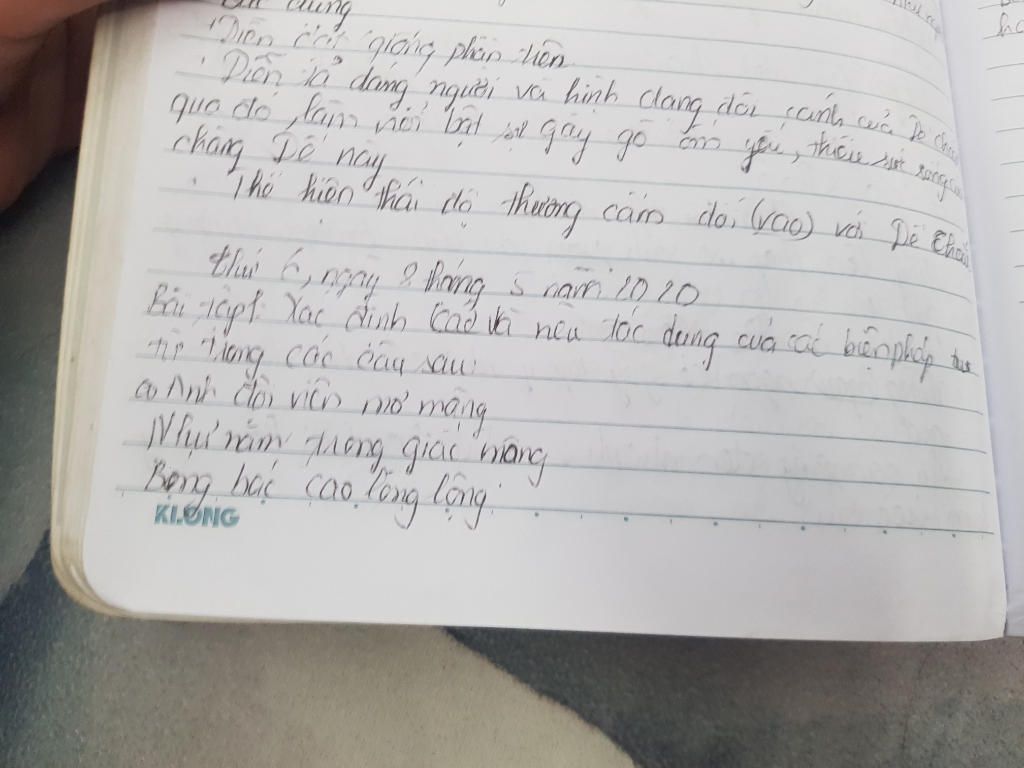 dung
Diễn cách giống phần trên
Diễn tả dáng người và hình dạng đôi cánh của Dế choắt
qua đó, làm nổi bật sự gầy gò ốm yếu, thiếu sức sống của
chàng Dế này
Thể hiện thái độ thương cảm đối (vào) với Dế Choắt
thứ 6, ngày 8 tháng 5 năm 2020
Bài tập1: Xác định (các) và nêu tác dụng của các biện pháp tu
từ trong các câu sau:
a) Anh đội viên mơ màng
Như nằm trong giấc mộng
Bóng bác cao lồng lộng
KLONG